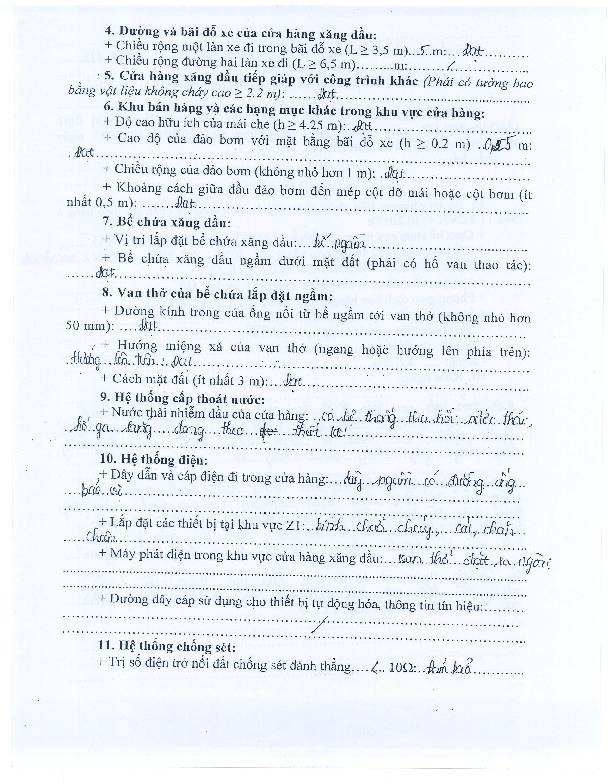 4. Đường và bãi đỗ xe của cửa hàng xăng dầu:
+ Chiều rộng một làn xe đi trong bãi đỗ xe (L ≥ 3,5 m)...5 m:...đạt
+ Chiều rộng đường hai làn xe đi (L ≥ 6,5 m)..........m:......../
5. Cửa hàng xăng dầu tiếp giáp với công trình khác (Phải có tường bao
bằng vật liệu không cháy cao ≥ 2.2 m): ......đạt
6. Khu bán hàng và các hạng mục khác trong khu vực cửa hàng:
+ Độ cao hữu ích của mái che (h ≥ 4.25 m):..đạt
+ Cao độ của đảo bơm với mặt bằng bãi đỗ xe (h ≥ 0.2 m) m:
..đạt
+ Chiều rộng của đảo bơm (không nhỏ hơn 1 m): ..đạt
+ Khoảng cách giữa đầu đảo bơm đến mép cột đỡ mái hoặc cột bơm (ít
nhất 0,5 m): ........đạt
7. Bể chứa xăng dầu:
+ Vị trí lắp đặt bể chứa xăng dầu:...bể ngầm
+ Bể chứa xăng dầu ngầm dưới mặt đất (phải có hố van thao tác):
......đạt
8. Van thở của bể chứa lắp đặt ngầm:
+ Đường kính trong của ống nối từ bể ngầm tới van thở (không nhỏ hơn
50 mm): ....đạt
+ Hướng miệng xả của van thở (ngang hoặc hướng lên phía trên):
hướng lên trên: đạt
+ Cách mặt đất (ít nhất 3 m):...đạt
9. Hệ thống cấp thoát nước:
+ Nước thải nhiễm dầu của cửa hàng: ..có hệ thống thu hồi nước thải,
hố ga theo thiết kế
10. Hệ thống điện:
+ Dây dẫn và cáp điện đi trong cửa hàng:...dây nguồn có đường ống
bảo vệ
+ Lắp đặt các thiết bị tại khu vực Z1:..bình chữa cháy, cát, chăn
chiên
+ Máy phát điện trong khu vực cửa hàng xăng dầu:...đặt ra ngoài
+ Đường dây cáp sử dụng cho thiết bị tự động hóa, thông tin tín hiệu:.........
/
11. Hệ thống chống sét:
+ Trị số điện trở nối đất chống sét đánh thẳng....<.. 10Ω: